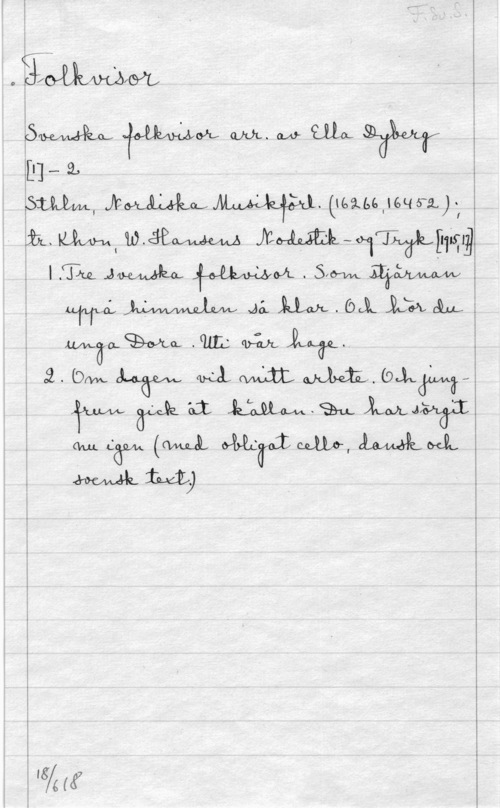 F. Sv. S.
Folkvisor
Svenska folkvisor arr. av Ella Dyberg
[1]-2
Sthlm, Nordiska Musikförl. (16266,16452);
tr. Khvn, W. Hansens Nodestik-og Tryk [1915,17]
1. Tre svenska folkvisor. Som stjärnan
uppå himmelen så klar. Och hör du
unga Dora. Uti vår hage.
2. Om dagen vid mitt arbete. Och jung-
frun gick åt källan. Du har sörgit
nu igen (med obligat cello, dansk och
svensk text.)
18/618